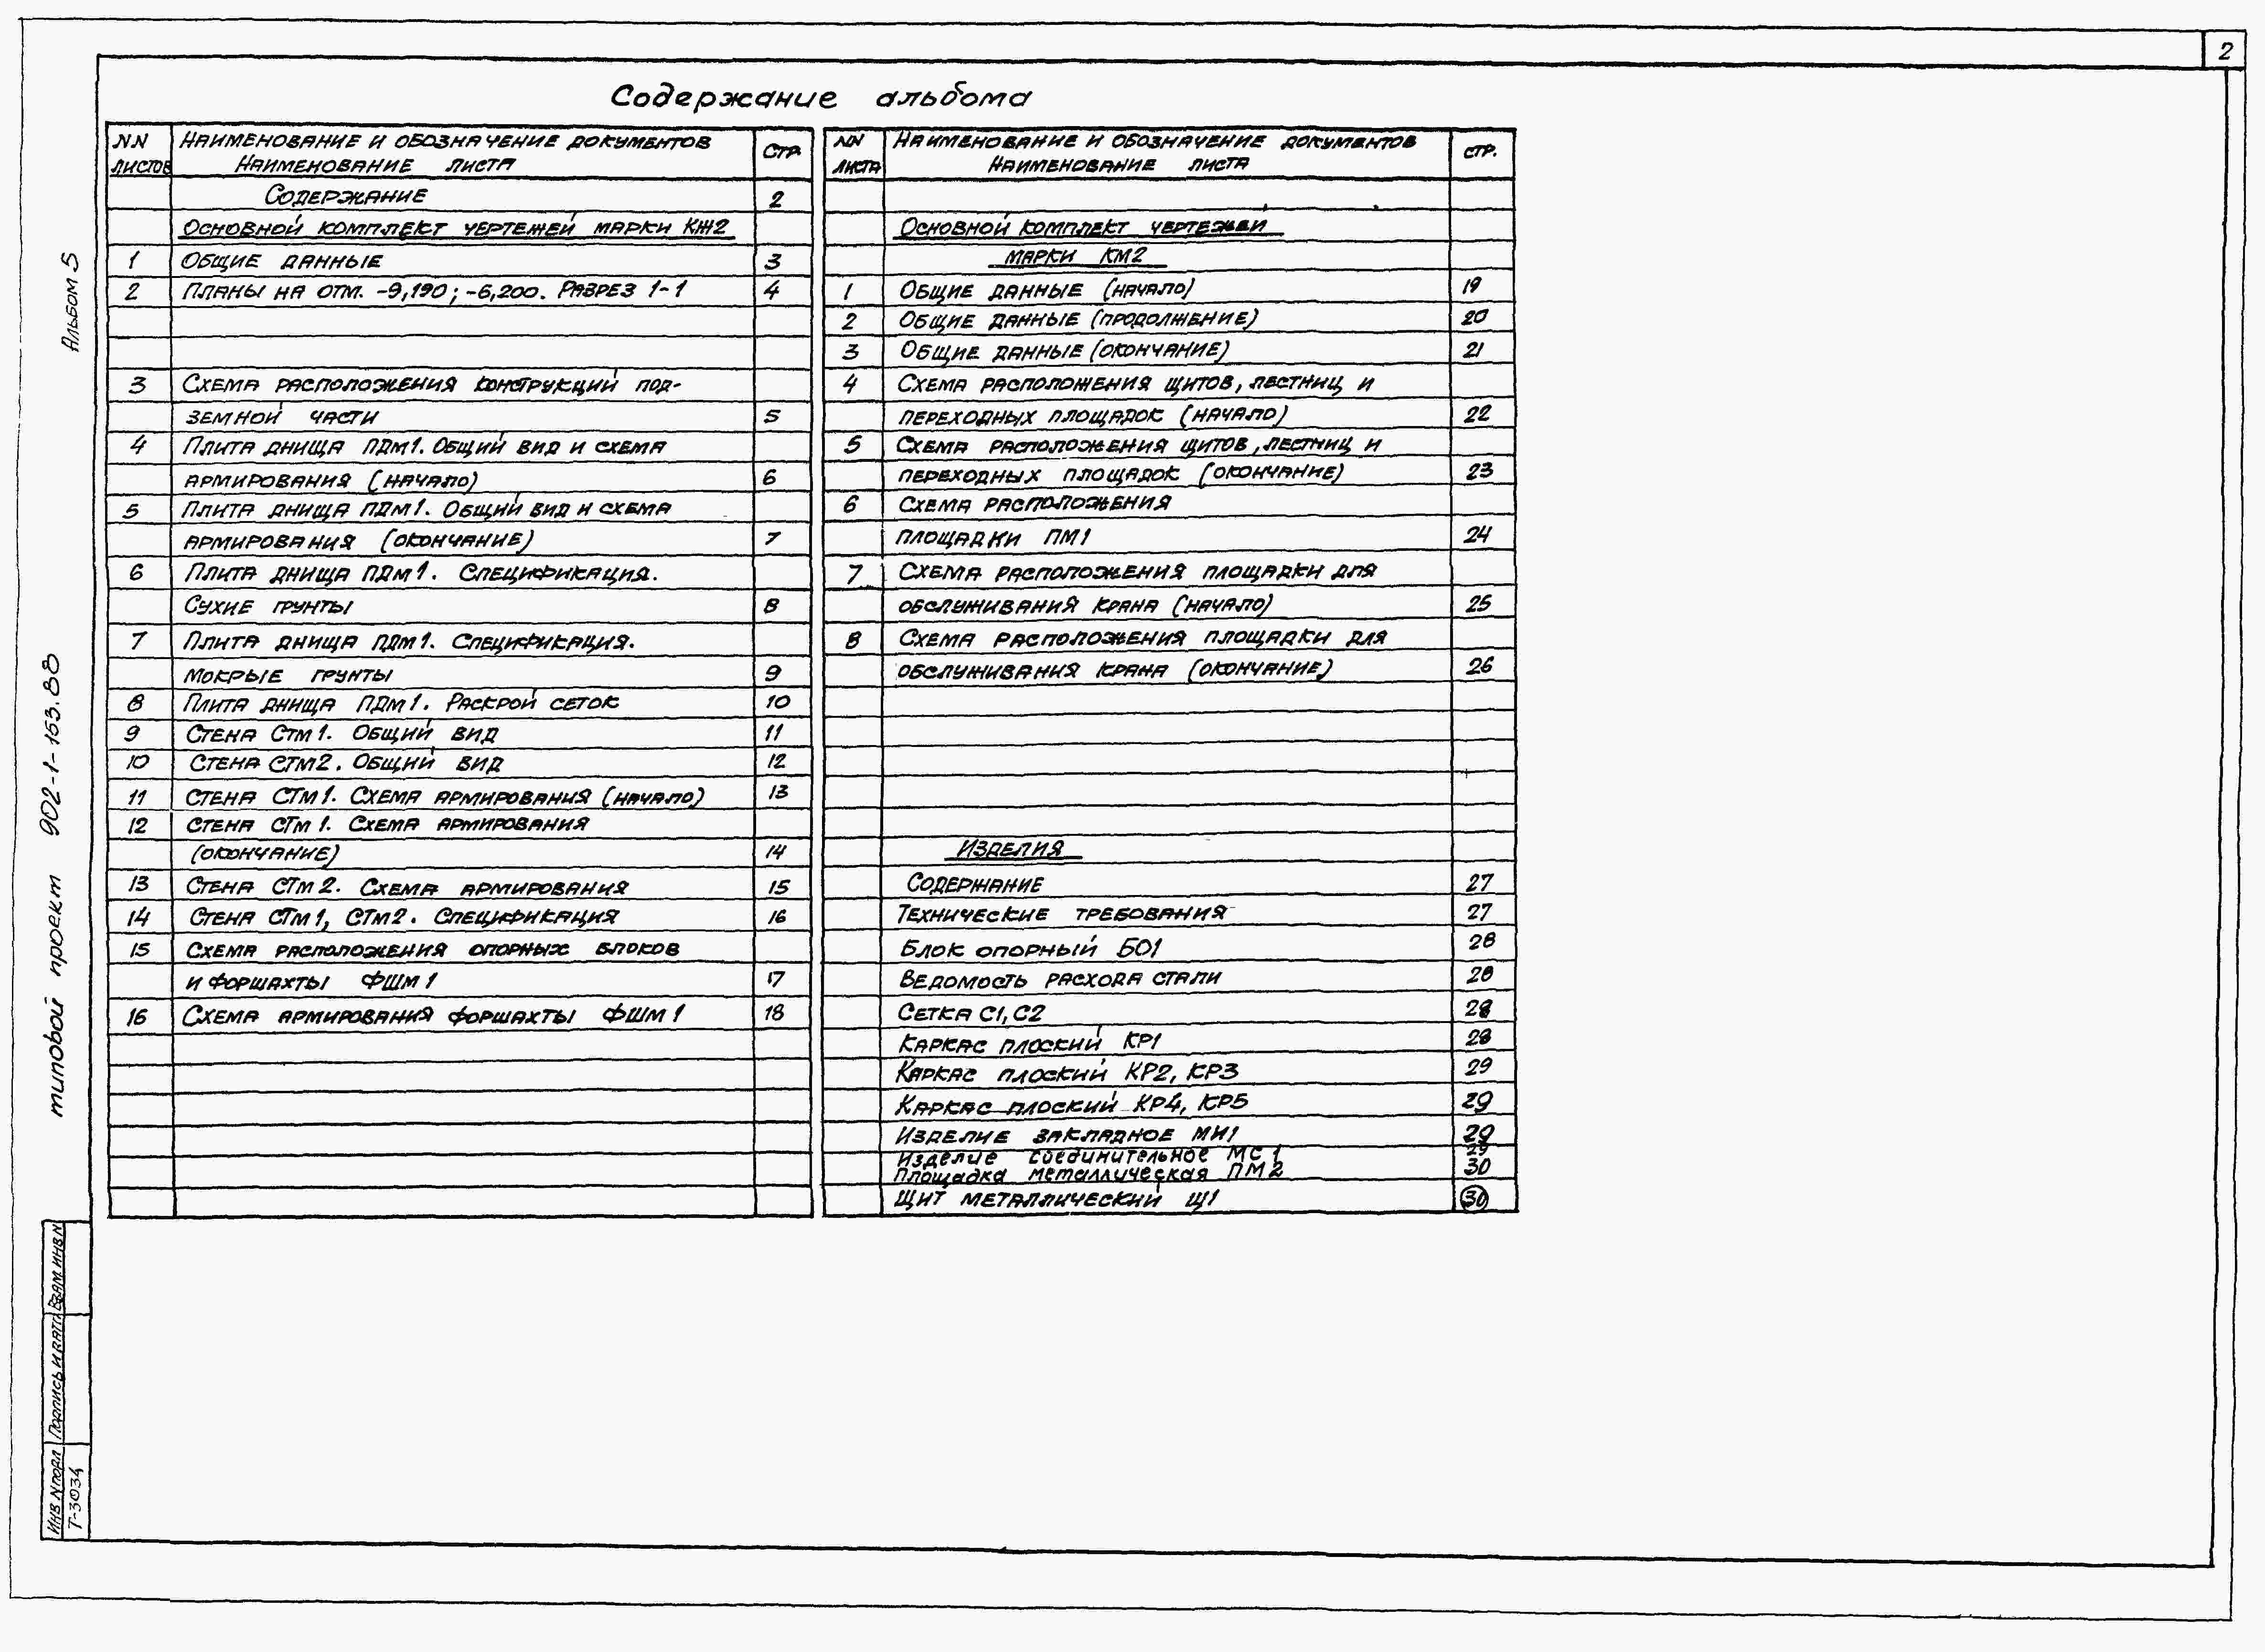 2
Содержание альбома
NN листов Наименование и обозначение документов Наименование листа Стр.
Содержание 2
Основной комплект чертежей марки КЖ2
1 Общие данные 3
2 Планы на отм. -9,190; -6,200. Разрез 1-1 4
3 Схема расположения конструкций под-
земной части 5
4 Плита днища ПДм1. Общий вид и схема
армирования (начало) 6
5 Плита днища ПДм1. Общий вид и схема
армирования (окончание) 7
6 Плита днища ПДм1. Спецификация.
Сухие грунты 8
7 Плита днища ПДм1. Спецификация.
Мокрые грунты 9
8 Плита днища ПДм1. Раскрой сеток 10
9 Стена Стм1. Общий вид 11
10 Стена СТм2. Общий вид 12
11 Стена СТм1. Схема армирования (начало) 13
12 Стена СТм1. Схема армирования
(окончание) 14
13 Стена СТм2. Схема армирования 15
14 Стена СТм1, СТм2. Спецификация 16
15 Схема расположения опорных блоков
и форшахты ФШм1 17
16 Схема армирования форшахты ФШм1 18
NN листа Наименование и обозначение документов Наименование листа стр.
Основной комплект чертежей
марки КМ2
1 Общие данные (начало) 19
2 Общие данные (продолжение) 20
3 Общие данные (окончание) 21
4 Схема расположения щитов, лестниц и
переходных площадок (начало) 22
5 Схема расположения щитов, лестниц и
переходных площадок (окончание) 23
6 Схема расположения
площадки ПМ1 24
7 Схема расположения площадки для
обслуживания крана (начало) 25
8 Схема расположения площадки для
обслуживания крана (окончание) 26
Изделия
Содержание 27
Технические требования 27
Блок опорный БО1 28
Ведомость расхода стали 28
Сетка С1, С2 28
Каркас плоский КР1 28
Каркас плоский КР2, КР3 29
Каркас плоский КР4, КР5 29
Изделие закладное МИ1 29
Изделие соединительное МС1 29
Площадка металлическая ПМ2 30
Щит металлический Щ1 30
Альбом 5
типовой проект 902-1-153.88
Взам инв N
Подпись и дата
Инв N подл
Т-3034